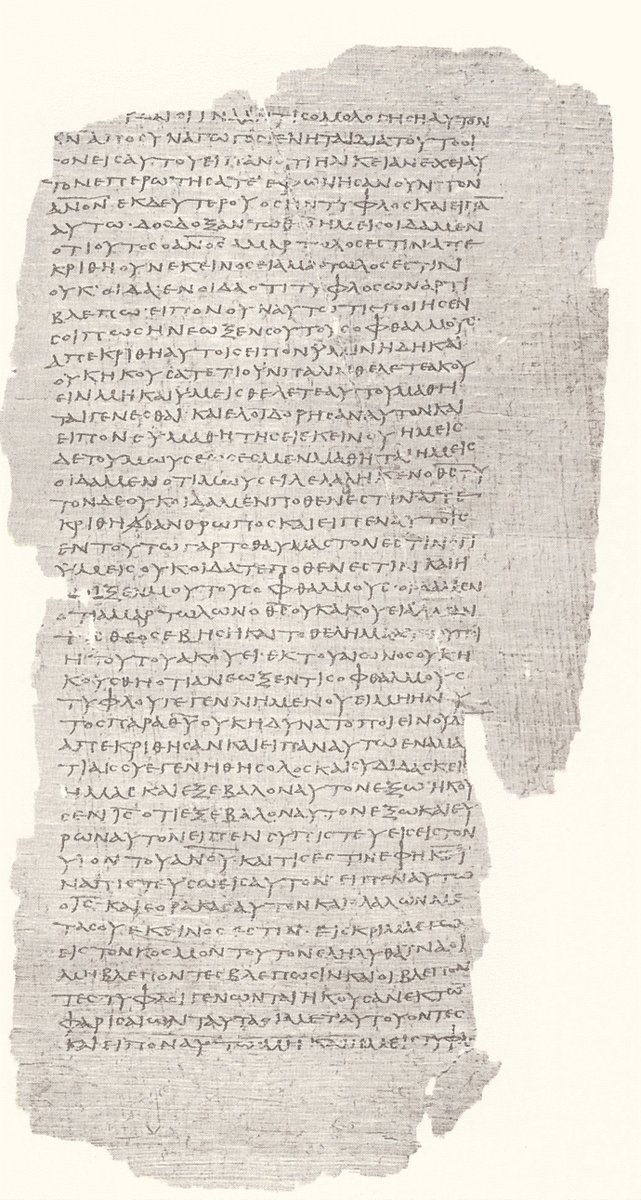 ΤΙϹΟΜΟΛΟΓΗϹΗΑΥΤΟΝ
ΑΠΟϹΥΝΑΓΩΓΟϹΓΕΝΗΤΑΙΔΙΑΤΟΥΤΟΟΙ
ΓΟΝΕΙϹΑΥΤΟΥΕΙΠΑΝΟΤΙΗΛΙΚΕΙΑΝΕΧΕΙΑΥ
ΤΟΝΕΠΕΡΩΤΗϹΑΤΕ ΕΦΩΝΗϹΑΝΟΥΝΤΟΝ
ΑΝΟΝ ΕΚΔΕΥΤΕΡΟΥΟϹΗΝΤΥΦΛΟϹΚΑΙΕΙΠΑ
ΑΥΤΩ·ΔΟϹΔΟΞΑΝΤΩΘΩ ΗΜΕΙϹΟΙΔΑΜΕΝ
ΟΤΙΟΥΤΟϹΟΑΝΟϹΑΜΑΡΤΩΛΟϹΕϹΤΙΝΑΠΕ
ΚΡΙΘΗΟΥΝΕΚΕΙΝΟϹΕΙΑΜΑΡΤΩΛΟϹΕϹΤΙΝ
ΟΥΚΟΙΔΑ·ΕΝΟΙΔΑΟΤΙΤΥΦΛΟϹΩΝΑΡΤΙ
ΒΛΕΠΩ·ΕΙΠΟΝΟΥΝΑΥΤΩΤΙΕΠΟΙΗϹΕΝ
ϹΟΙΠΩϹΗΝΕΩΞΕΝϹΟΥΤΟΥϹΟΦΘΑΛΜΟΥϹ·
ΑΠΕΚΡΙΘΗΑΥΤΟΙϹΕΙΠΟΝΥΜΙΝΗΔΗΚΑΙ
ΟΥΚΗΚΟΥϹΑΤΕΤΙΟΥΝΠΑΛΙΝΘΕΛΕΤΕΑΚΟΥ
ΕΙΝΜΗΚΑΙΥΜΕΙϹΘΕΛΕΤΕΑΥΤΟΥΜΑΘΗ
ΤΑΙΓΕΝΕϹΘΑΙ·ΚΑΙΕΛΟΙΔΟΡΗϹΑΝΑΥΤΟΝΚΑΙ
ΕΙΠΟΝϹΥΜΑΘΗΤΗϹΕΙΕΚΕΙΝΟΥ ΗΜΕΙϹ
ΔΕΤΟΥΜΩΥϹΕΩϹΕϹΜΕΝΜΑΘΗΤΑΙ·ΗΜΕΙϹ
ΟΙΔΑΜΕΝΟΤΙΜΩΥϹΕΙΛΕΛΑΛΗΚΕΝΟΘϹΤΥ
ΤΟΝΔΕΟΥΚΟΙΔΑΜΕΝΠΟΘΕΝΕϹΤΙΝΑΠΕ
ΚΡΙΘΗΑΝΘΡΩΠΟϹΚΑΙΕΙΠΕΝΑΥΤΟΙϹ
ΕΝΤΟΥΤΩΓΑΡΤΟΘΑΥΜΑϹΤΟΝΕϹΤΙΝΟΤΙ
ΥΜΕΙϹΟΥΚΟΙΔΑΤΕΠΟΘΕΝΕϹΤΙΝ ΚΑΙΗ
ΞΕΝΜΟΥΤΟΥϹΟΦΘΑΛΜΟΥϹ·ΟΙΔΑΜΕΝ
ΟΤΙΑΜΑΡΤΩΛΩΝΟΘΕΟΥΚΑΚΟΥΕΙ
ΘΕΟϹΕΒΗϹΗΚΑΙΤΟΘΕΛΗΜΑ
Η·ΤΟΥΤΟΥΑΚΟΥΕΙ·ΕΚΤΟΥΑΙΩΝΟϹΟΥΚΗ
ΚΟΥϹΘΗΟΤΙΑΝΕΩΞΕΝΤΙϹΟΦΘΑΛΜΟΥϹ
ΤΥΦΛΟΥΓΕΓΕΝΝΗΜΕΝΟΥΕΙΜΗΗΝ
ΤΟϹΠΑΡΑΘΥΟΥΚΗΔΥΝΑΤΟΠΟΙΕΙΝΟΥΔ
ΑΠΕΚΡΙΘΗϹΑΝΚΑΙΕΙΠΑΝΑΥΤΩΕΝΑΜΑ
ΤΙΑΙϹϹΥΕΓΕΝΗΘΗϹΟΛΟϹΚΑΙϹΥΔΙΔΑϹΚΕΙ
ΗΜΑϹΚΑΙΕΞΕΒΑΛΟΝΑΥΤΟΝΕΞΩ ΗΚΟΥ
ϹΕΝΙϹ·ΟΤΙΕΞΕΒΑΛΟΝΑΥΤΟΝΕΞΩΚΑΙΕΥ
ΡΩΝΑΥΤΟΝΕΙΠΕΝϹΥΠΙϹΤΕΥΕΙϹΕΙϹΤΟΝ
ΥΙΟΝΤΟΥΑΝΟΥ·ΚΑΙΤΙϹΕϹΤΙΝΕΦΗΚΕΙ
ΝΑΠΙϹΤΕΥϹΩΕΙϹΑΥΤΟΝ·ΕΙΠΕΝΑΥΤΩ
ΟΙϹ·ΚΑΙΕΟΡΑΚΑϹΑΥΤΟΝΚΑΙΟΛΑΛΩΝΜΕ
ΤΑϹΟΥΕΚΕΙΝΟϹΕϹΤΙΝ·ΕΙϹΚΡΙΜΑΕΓΩ
ΕΙϹΤΟΝΚΟϹΜΟΝΤΟΥΤΟΝΕΛΗΛΥΘΑΙΝΑΟΙ
ΜΗΒΛΕΠΟΝΤΕϹΒΛΕΠΩϹΙΝΚΑΙΟΙΒΛΕΠΟΝ
ΤΕϹΤΥΦΛΟΙΓΕΝΩΝΤΑΙΗΚΟΥϹΑΝΕΚΤΩ
ΦΑΡΙϹΑΙΩΝΤΑΥΤΑΟΙΜΕΤΑΥΤΟΥΟΝΤΕϹ
ΚΑΙΕΙΠΟΝΑΥΤΩΜΗΚΑΙΗΜΕΙϹΤΥΦΛ